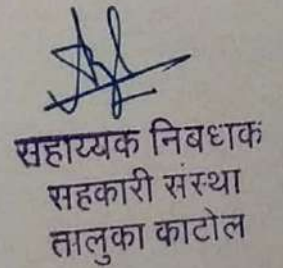 सहाय्यक निबधक
सहकारी संस्था
तालुका काटोल